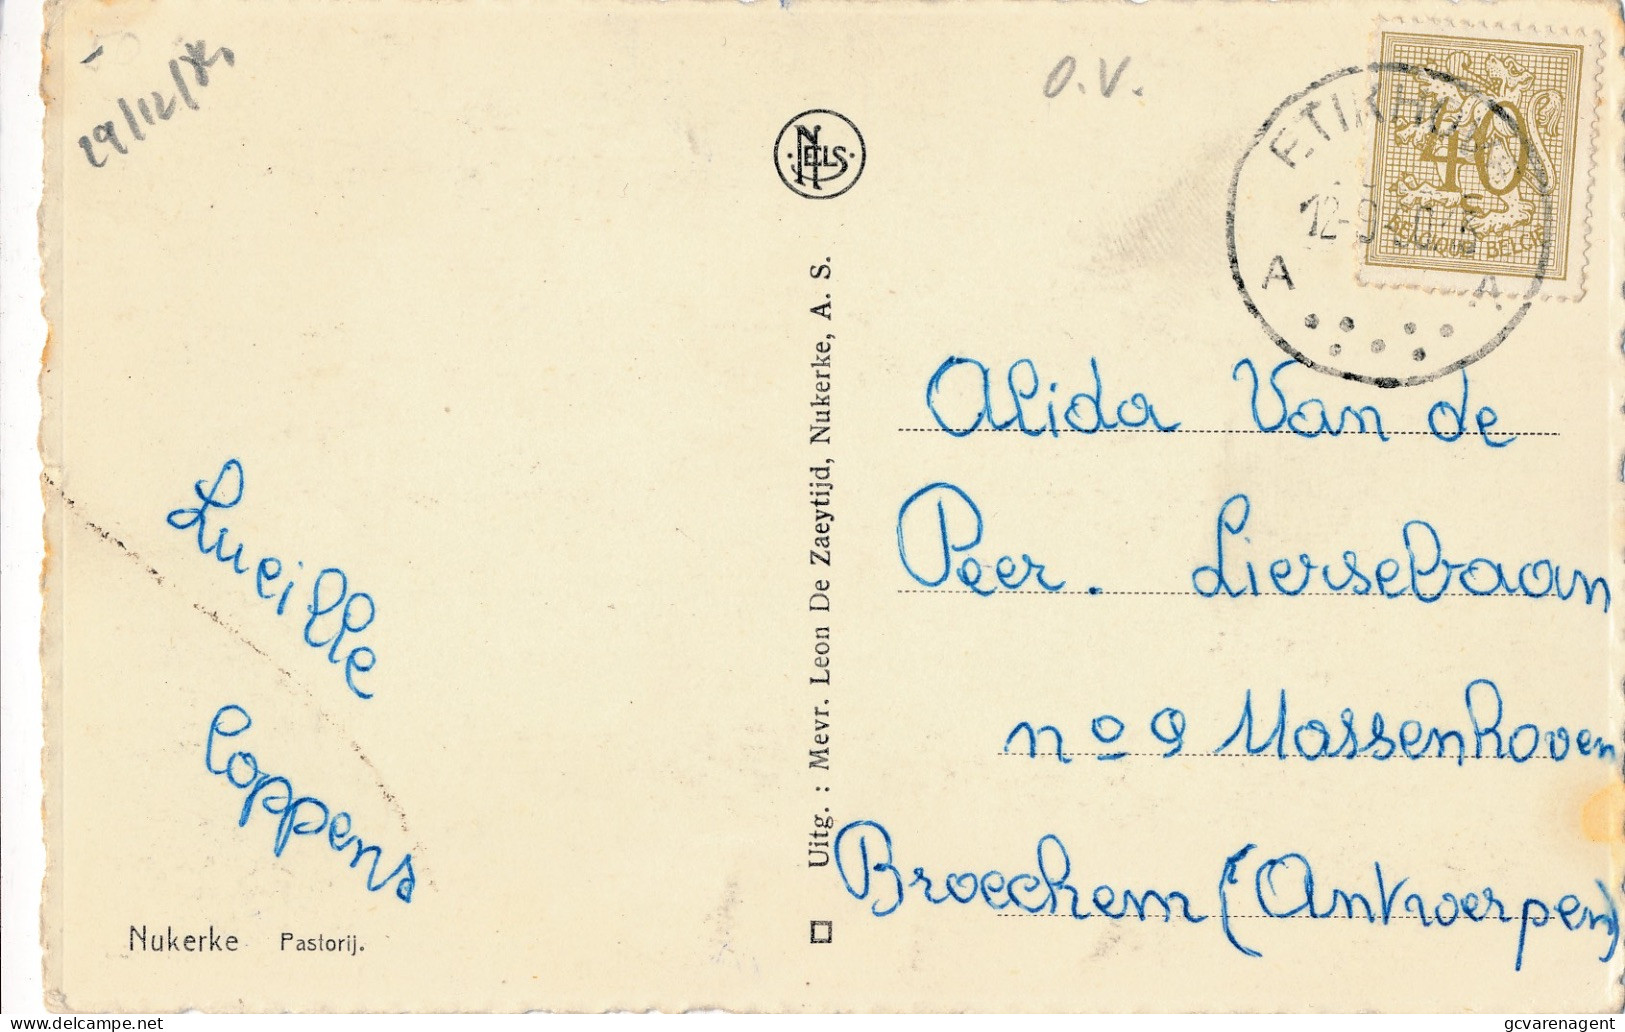 29/12/
O.V.
NELS
40
BELGIQUE BELGIË
ETIKHOVE
12-9
A A
Alida Van de
Peer. Liersebaan
no 9 Massenhoven
Broechem (Antwerpen)
Lucille
Coppens
Uitg. : Mevr. Leon De Zaeytijd, Nukerke, A. S.
Nukerke Pastorij.
© gcvarenagent